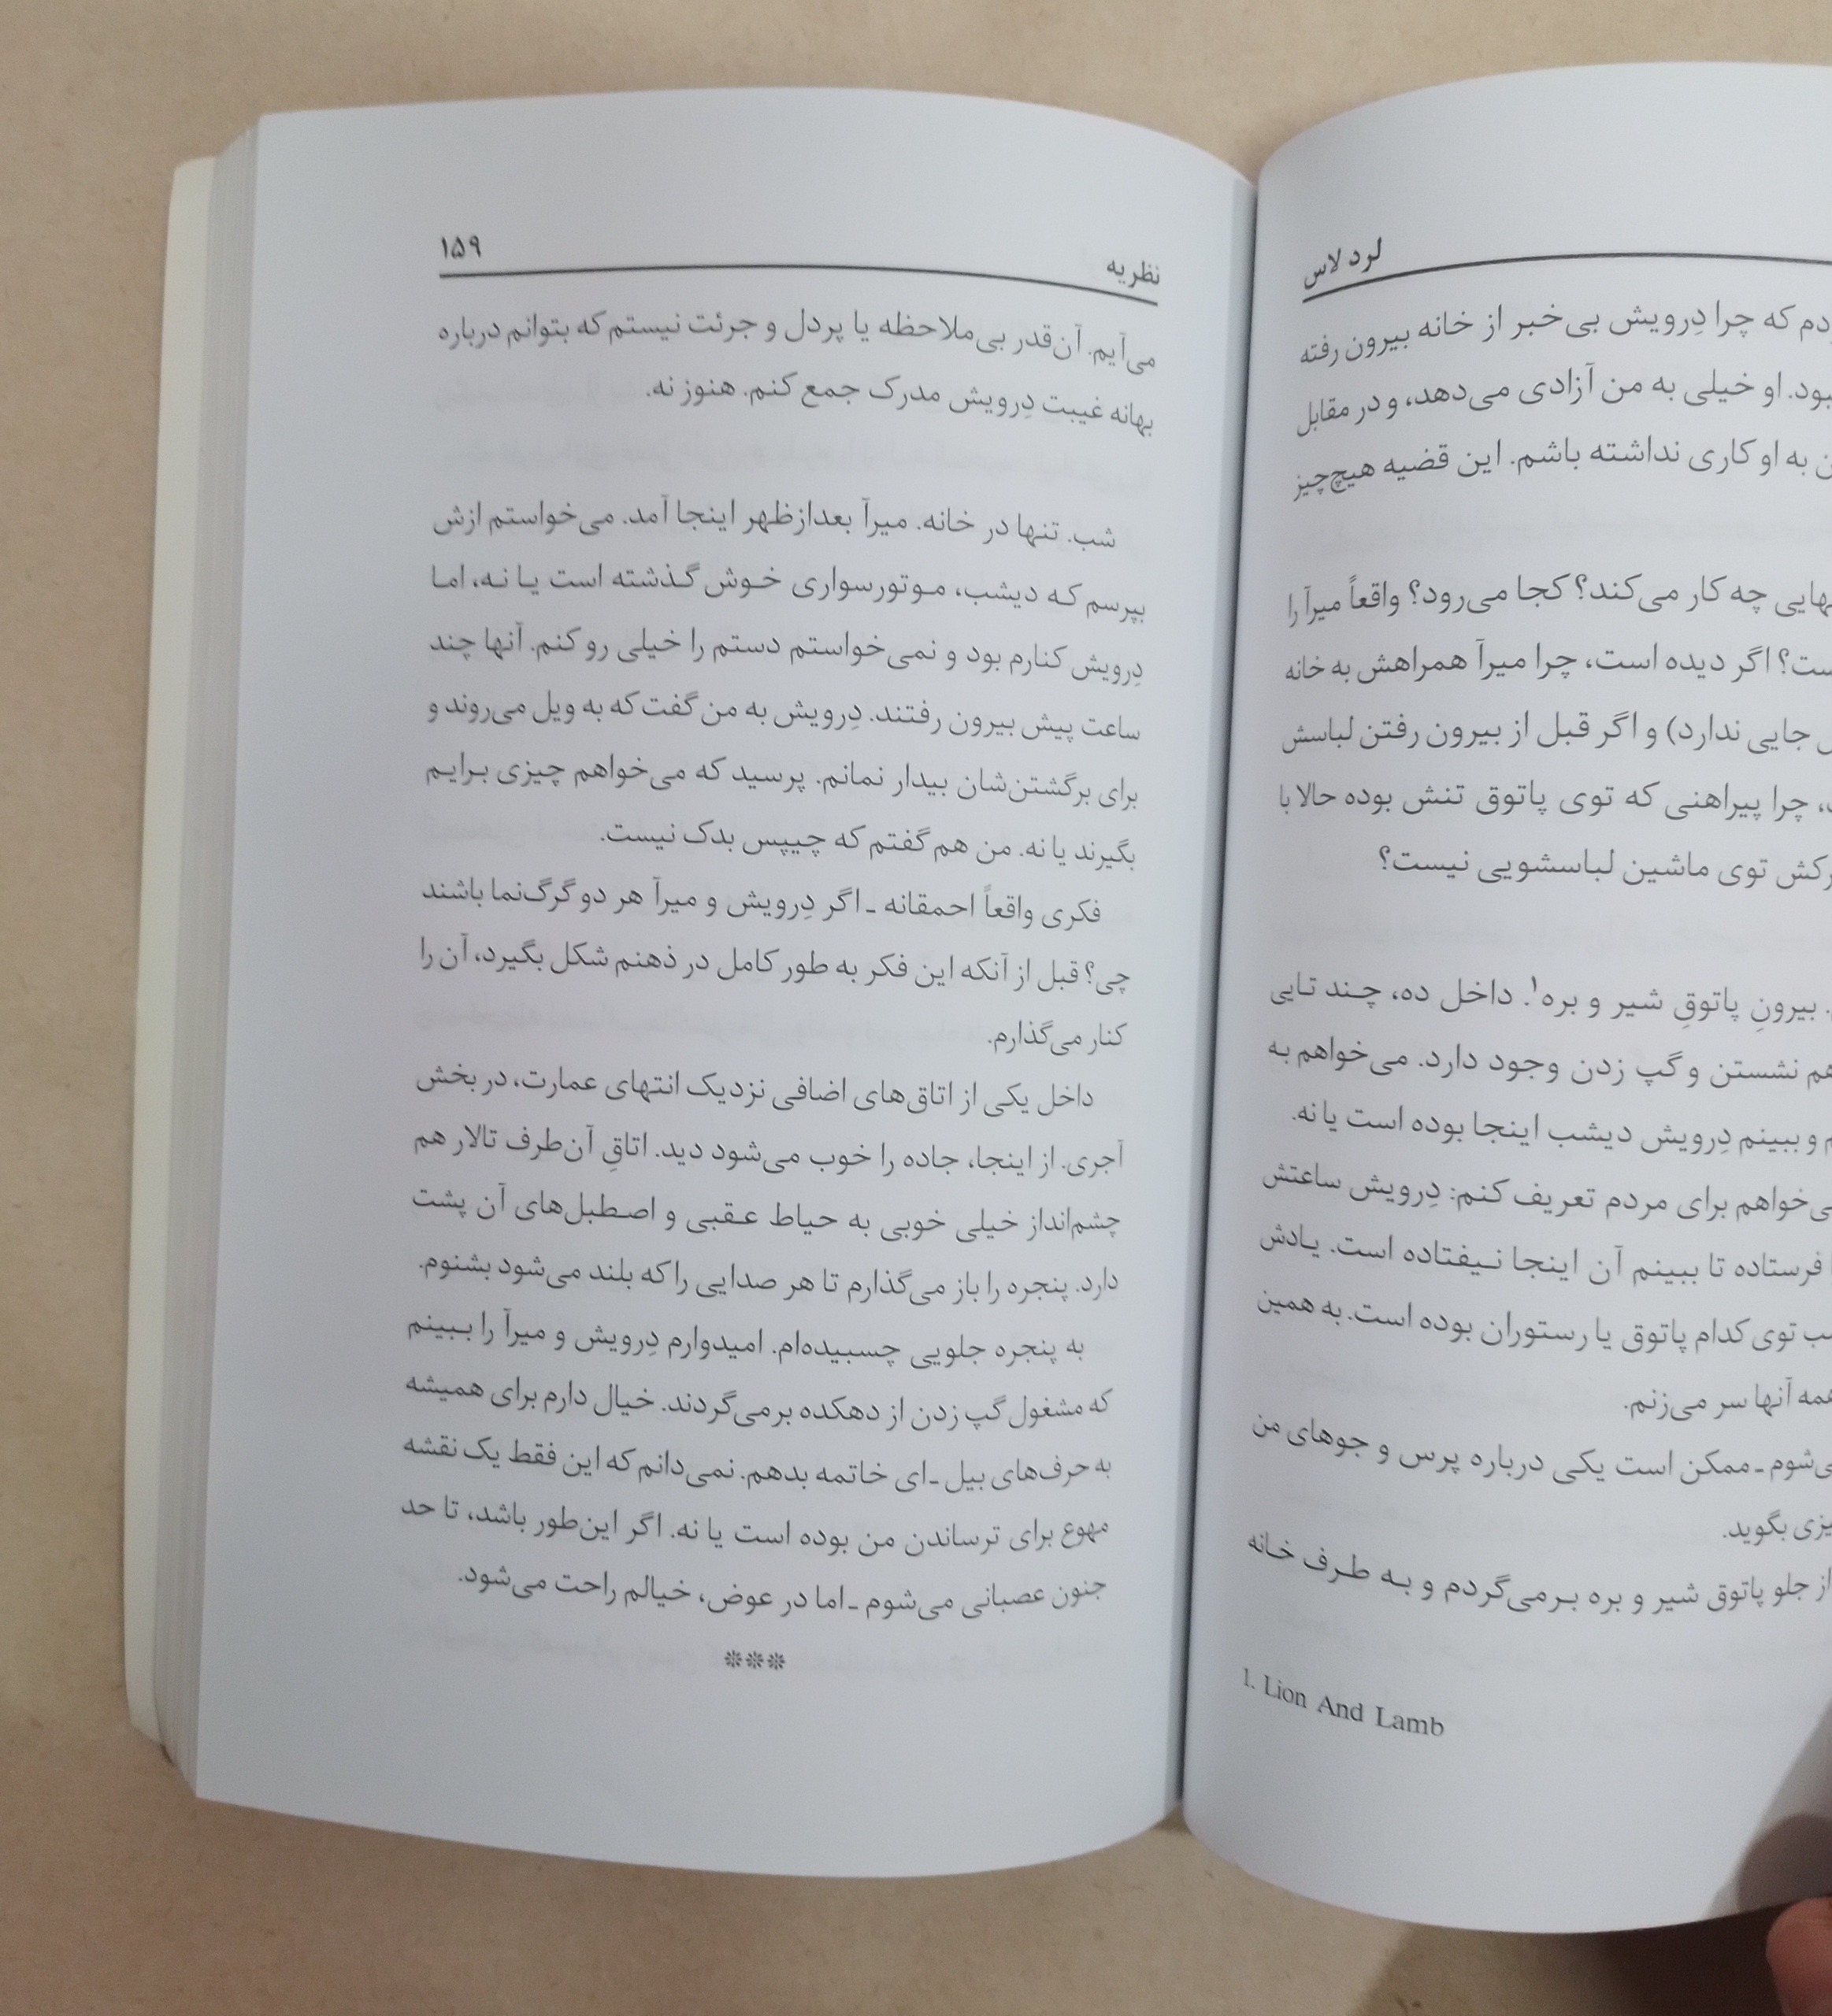 لرد لاس
که چرا دِرویش بی‌خبر از خانه بیرون رفته
او خیلی به من آزادی می‌دهد، و در مقابل
به او کاری نداشته باشم. این قضیه هیچ‌چیز
چه کار می‌کند؟ کجا می‌رود؟ واقعاً میرآ را
اگر دیده است، چرا میرآ همراهش به خانه
جایی ندارد) و اگر قبل از بیرون رفتن لباسش
چرا پیراهنی که توی پاتوق تنش بوده حالا با
توی ماشین لباسشویی نیست؟
بیرونِ پاتوقِ شیر و بره۱. داخل ده، چند تایی
نشستن و گپ زدن وجود دارد. می‌خواهم به
و ببینم دِرویش دیشب اینجا بوده است یا نه.
برای مردم تعریف کنم: دِرویش ساعتش
فرستاده تا ببینم آن اینجا نیفتاده است. یادش
توی کدام پاتوق یا رستوران بوده است. به همین
آنها سر می‌زنم.
ممکن است یکی درباره پرس و جوهای من
بگوید.
از جلو پاتوق شیر و بره برمی‌گردم و به طرف خانه
1. Lion And Lamb
نظریه ۱۵۹
می‌آیم. آن‌قدر بی‌ملاحظه یا پردل و جرئت نیستم که بتوانم درباره
بهانه غیبت دِرویش مدرک جمع کنم. هنوز نه.
شب. تنها در خانه. میرآ بعدازظهر اینجا آمد. می‌خواستم ازش
بپرسم که دیشب، موتورسواری خوش گذشته است یا نه، اما
دِرویش کنارم بود و نمی‌خواستم دستم را خیلی رو کنم. آنها چند
ساعت پیش بیرون رفتند. دِرویش به من گفت که به ویل می‌روند و
برای برگشتن‌شان بیدار نمانم. پرسید که می‌خواهم چیزی برایم
بگیرند یا نه. من هم گفتم که چیپس بدک نیست.
فکری واقعاً احمقانه ـ اگر دِرویش و میرآ هر دو گرگ‌نما باشند
چی؟ قبل از آنکه این فکر به طور کامل در ذهنم شکل بگیرد، آن را
کنار می‌گذارم.
داخل یکی از اتاق‌های اضافی نزدیک انتهای عمارت، در بخش
آجری. از اینجا، جاده را خوب می‌شود دید. اتاقِ آن‌طرف تالار هم
چشم‌انداز خیلی خوبی به حیاط عقبی و اصطبل‌های آن پشت
دارد. پنجره را باز می‌گذارم تا هر صدایی را که بلند می‌شود بشنوم.
به پنجره جلویی چسبیده‌ام. امیدوارم دِرویش و میرآ را ببینم
که مشغول گپ زدن از دهکده برمی‌گردند. خیال دارم برای همیشه
به حرف‌های بیل ـ ای خاتمه بدهم. نمی‌دانم که این فقط یک نقشه
مهوع برای ترساندن من بوده است یا نه. اگر این‌طور باشد، تا حد
جنون عصبانی می‌شوم ـ اما در عوض، خیالم راحت می‌شود.
***